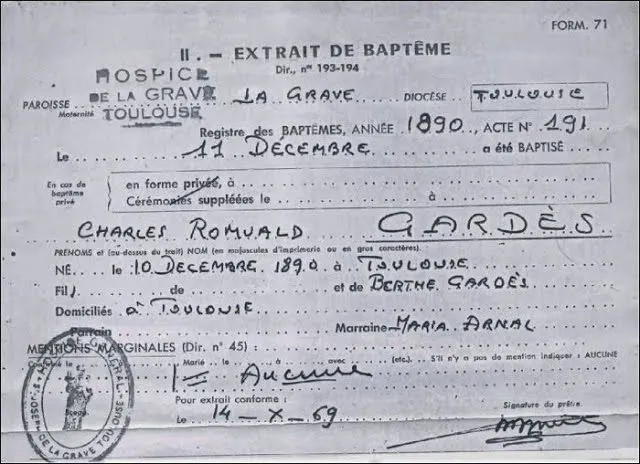 FORM. 71
II. - EXTRAIT DE BAPTÊME
Dir., nos 193-194
HOSPICE
DE LA GRAVE
TOULOUSE
PAROISSE LA GRAVE DIOCÈSE TOULOUSE
Maternité
Registre des BAPTÊMES, ANNÉE 1890, ACTE N° 191
Le 11 DÉCEMBRE a été BAPTISÉ
En cas de baptême privé
en forme privée, à
Cérémonies suppléées le à
CHARLES ROMUALD GARDÈS
PRÉNOMS et (au-dessus du trait) NOM (en majuscules d'imprimerie ou en gros caractères).
NÉ le 10 DECEMBRE 1890 à TOULOUSE
Fils de et de BERTHE GARDÈS
Domiciliés à TOULOUSE
Parrain Marraine MARIA ARNAL
MENTIONS MARGINALES (Dir. n° 45) :
Marié le à avec (etc.) S'il n'y a pas de mention indiquer : AUCUNE
Aucune
Pour extrait conforme :
Le 14-X-69
Signature du prêtre.
ST JOSEPH DE LA GRAVE TOULOUSE